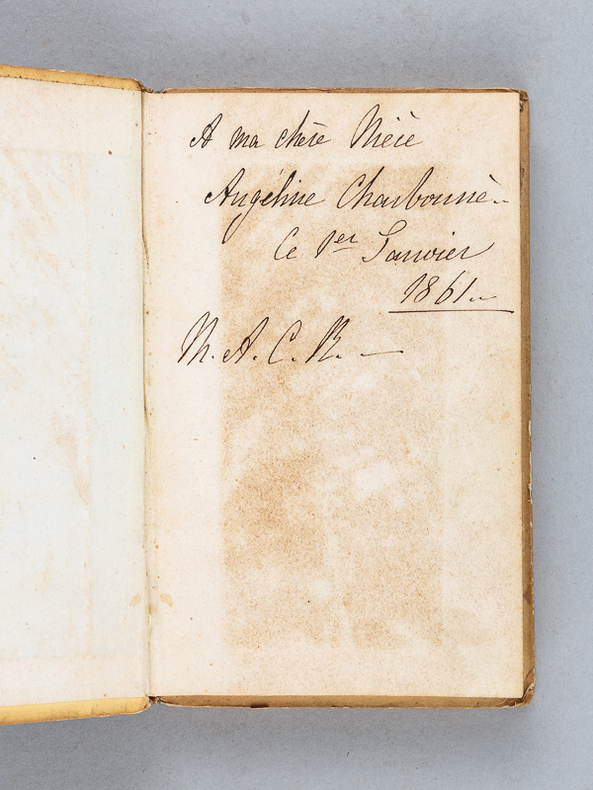 A ma chère Nièce
Angéline Charbonnè..
Ce 1er Janvier
1861..
N. A. C. R. —